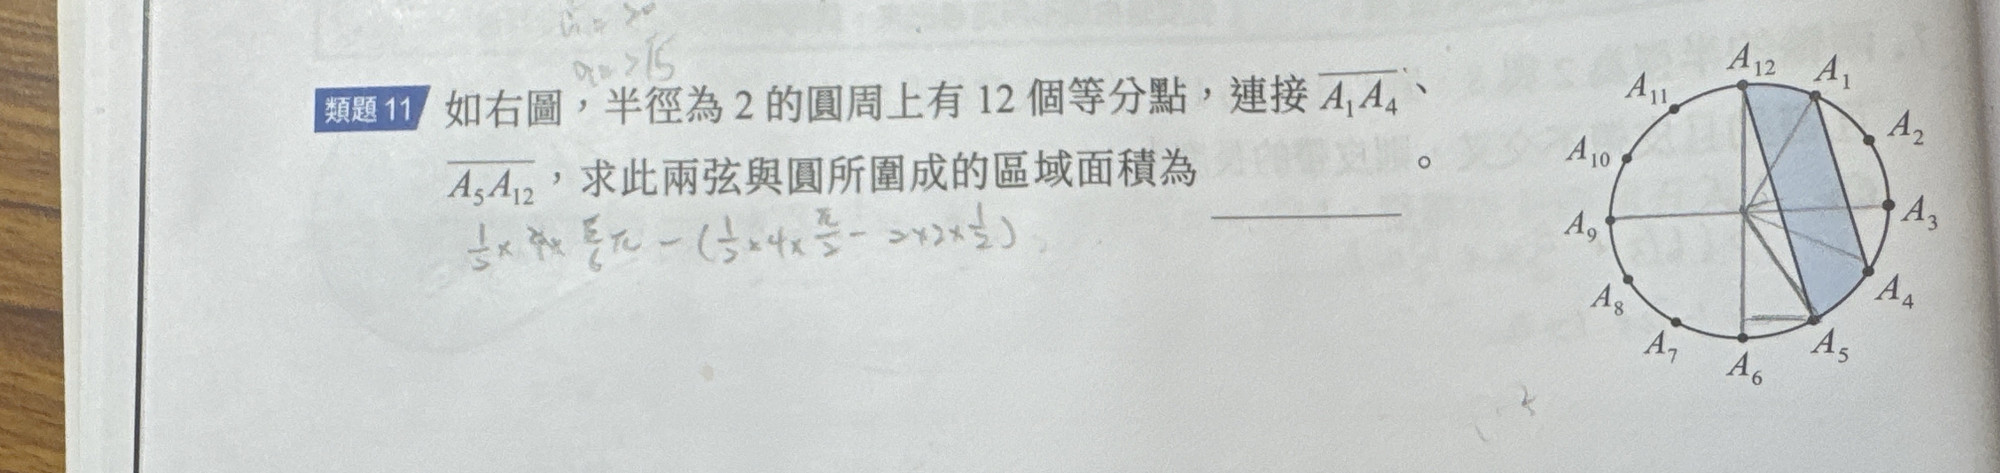 a = 2√5
類題 11 如右圖，半徑為 2 的圓周上有 12 個等分點，連接 A₁A₄、
A₅A₁₂，求此兩弦與圓所圍成的區域面積為＿＿＿＿。
½ × 4 × 5/6 π − (½ × 4 × π/2 − 2×2×½)
A₁₂
A₁
A₁₁
A₂
A₁₀
A₃
A₉
A₄
A₈
A₅
A₇
A₆